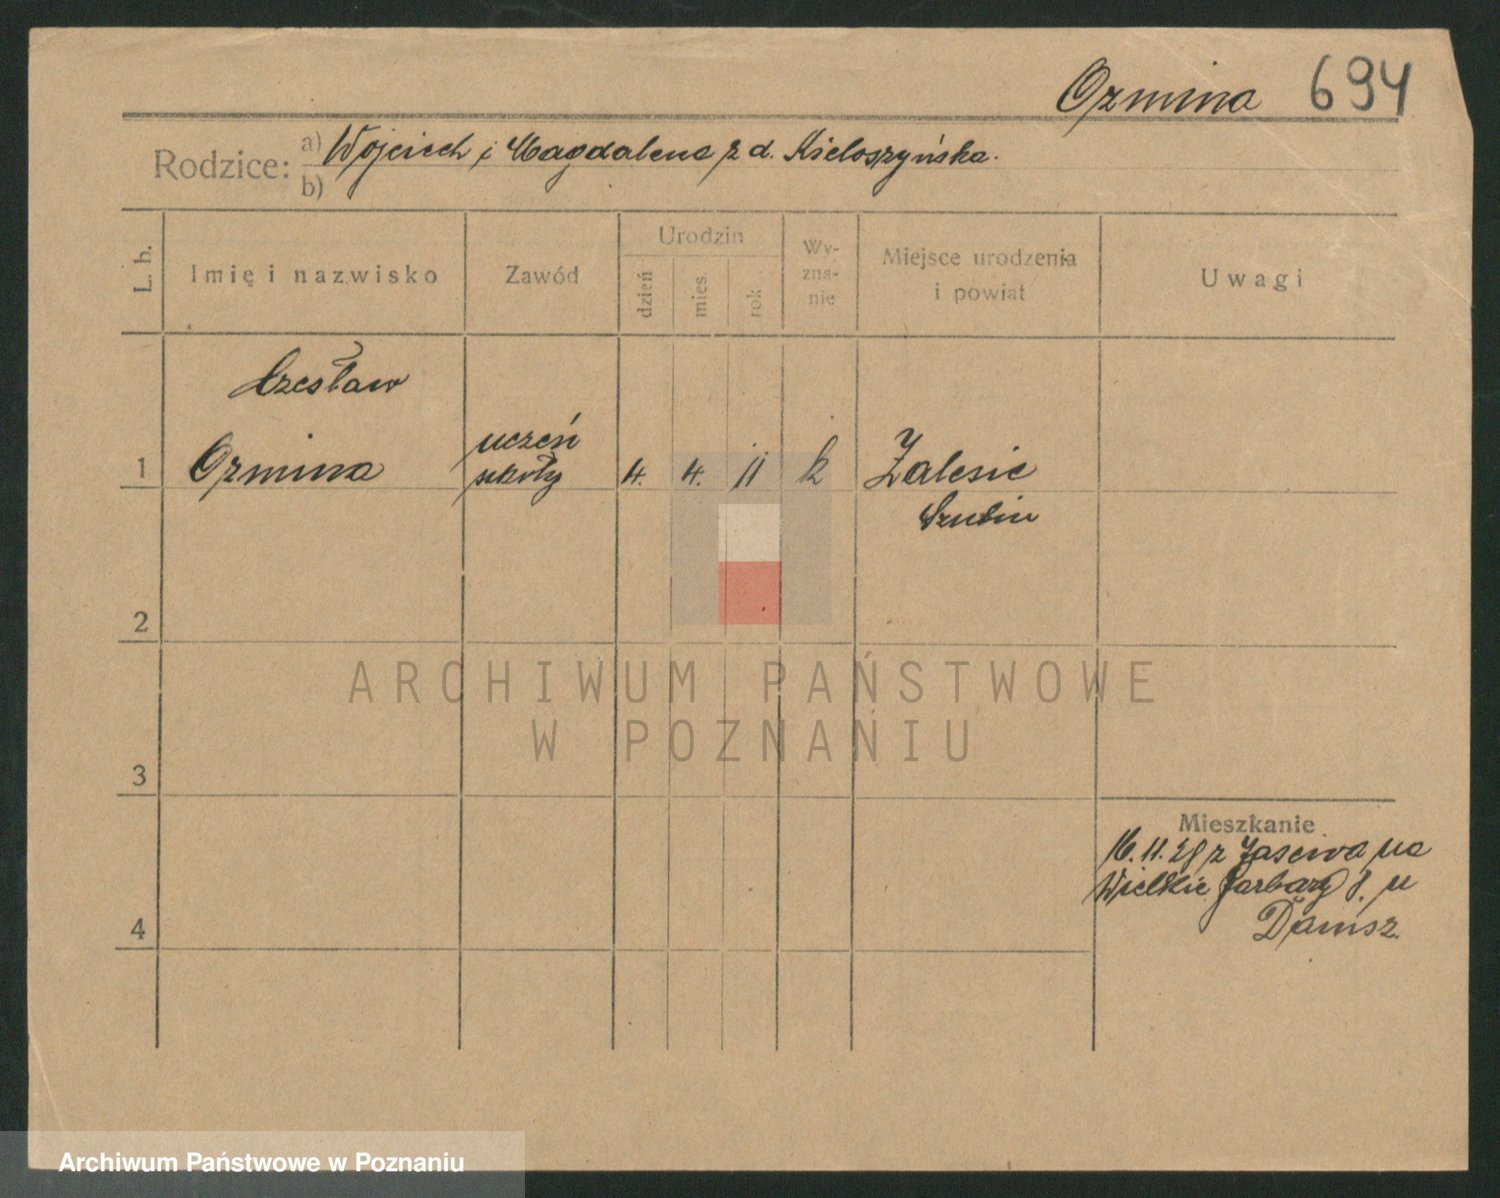 Ozmina 694
Rodzice: a) Wojciech i Magdalena z d. Kieloszyńska.
b)
L. b. Imię i nazwisko Zawód Urodzin dzień mies. rok Wy-zna-nie Miejsce urodzenia i powiat Uwagi
Czesław
1 Ozmina uczeń szkoły 4. 4. 11 k Zalesie
Szubin
2
ARCHIWUM PAŃSTWOWE
W POZNANIU
3
Mieszkanie
16. 11. 28 z na
Wielkie Garbary 8. u
4 Danisz
Archiwum Państwowe w Poznaniu